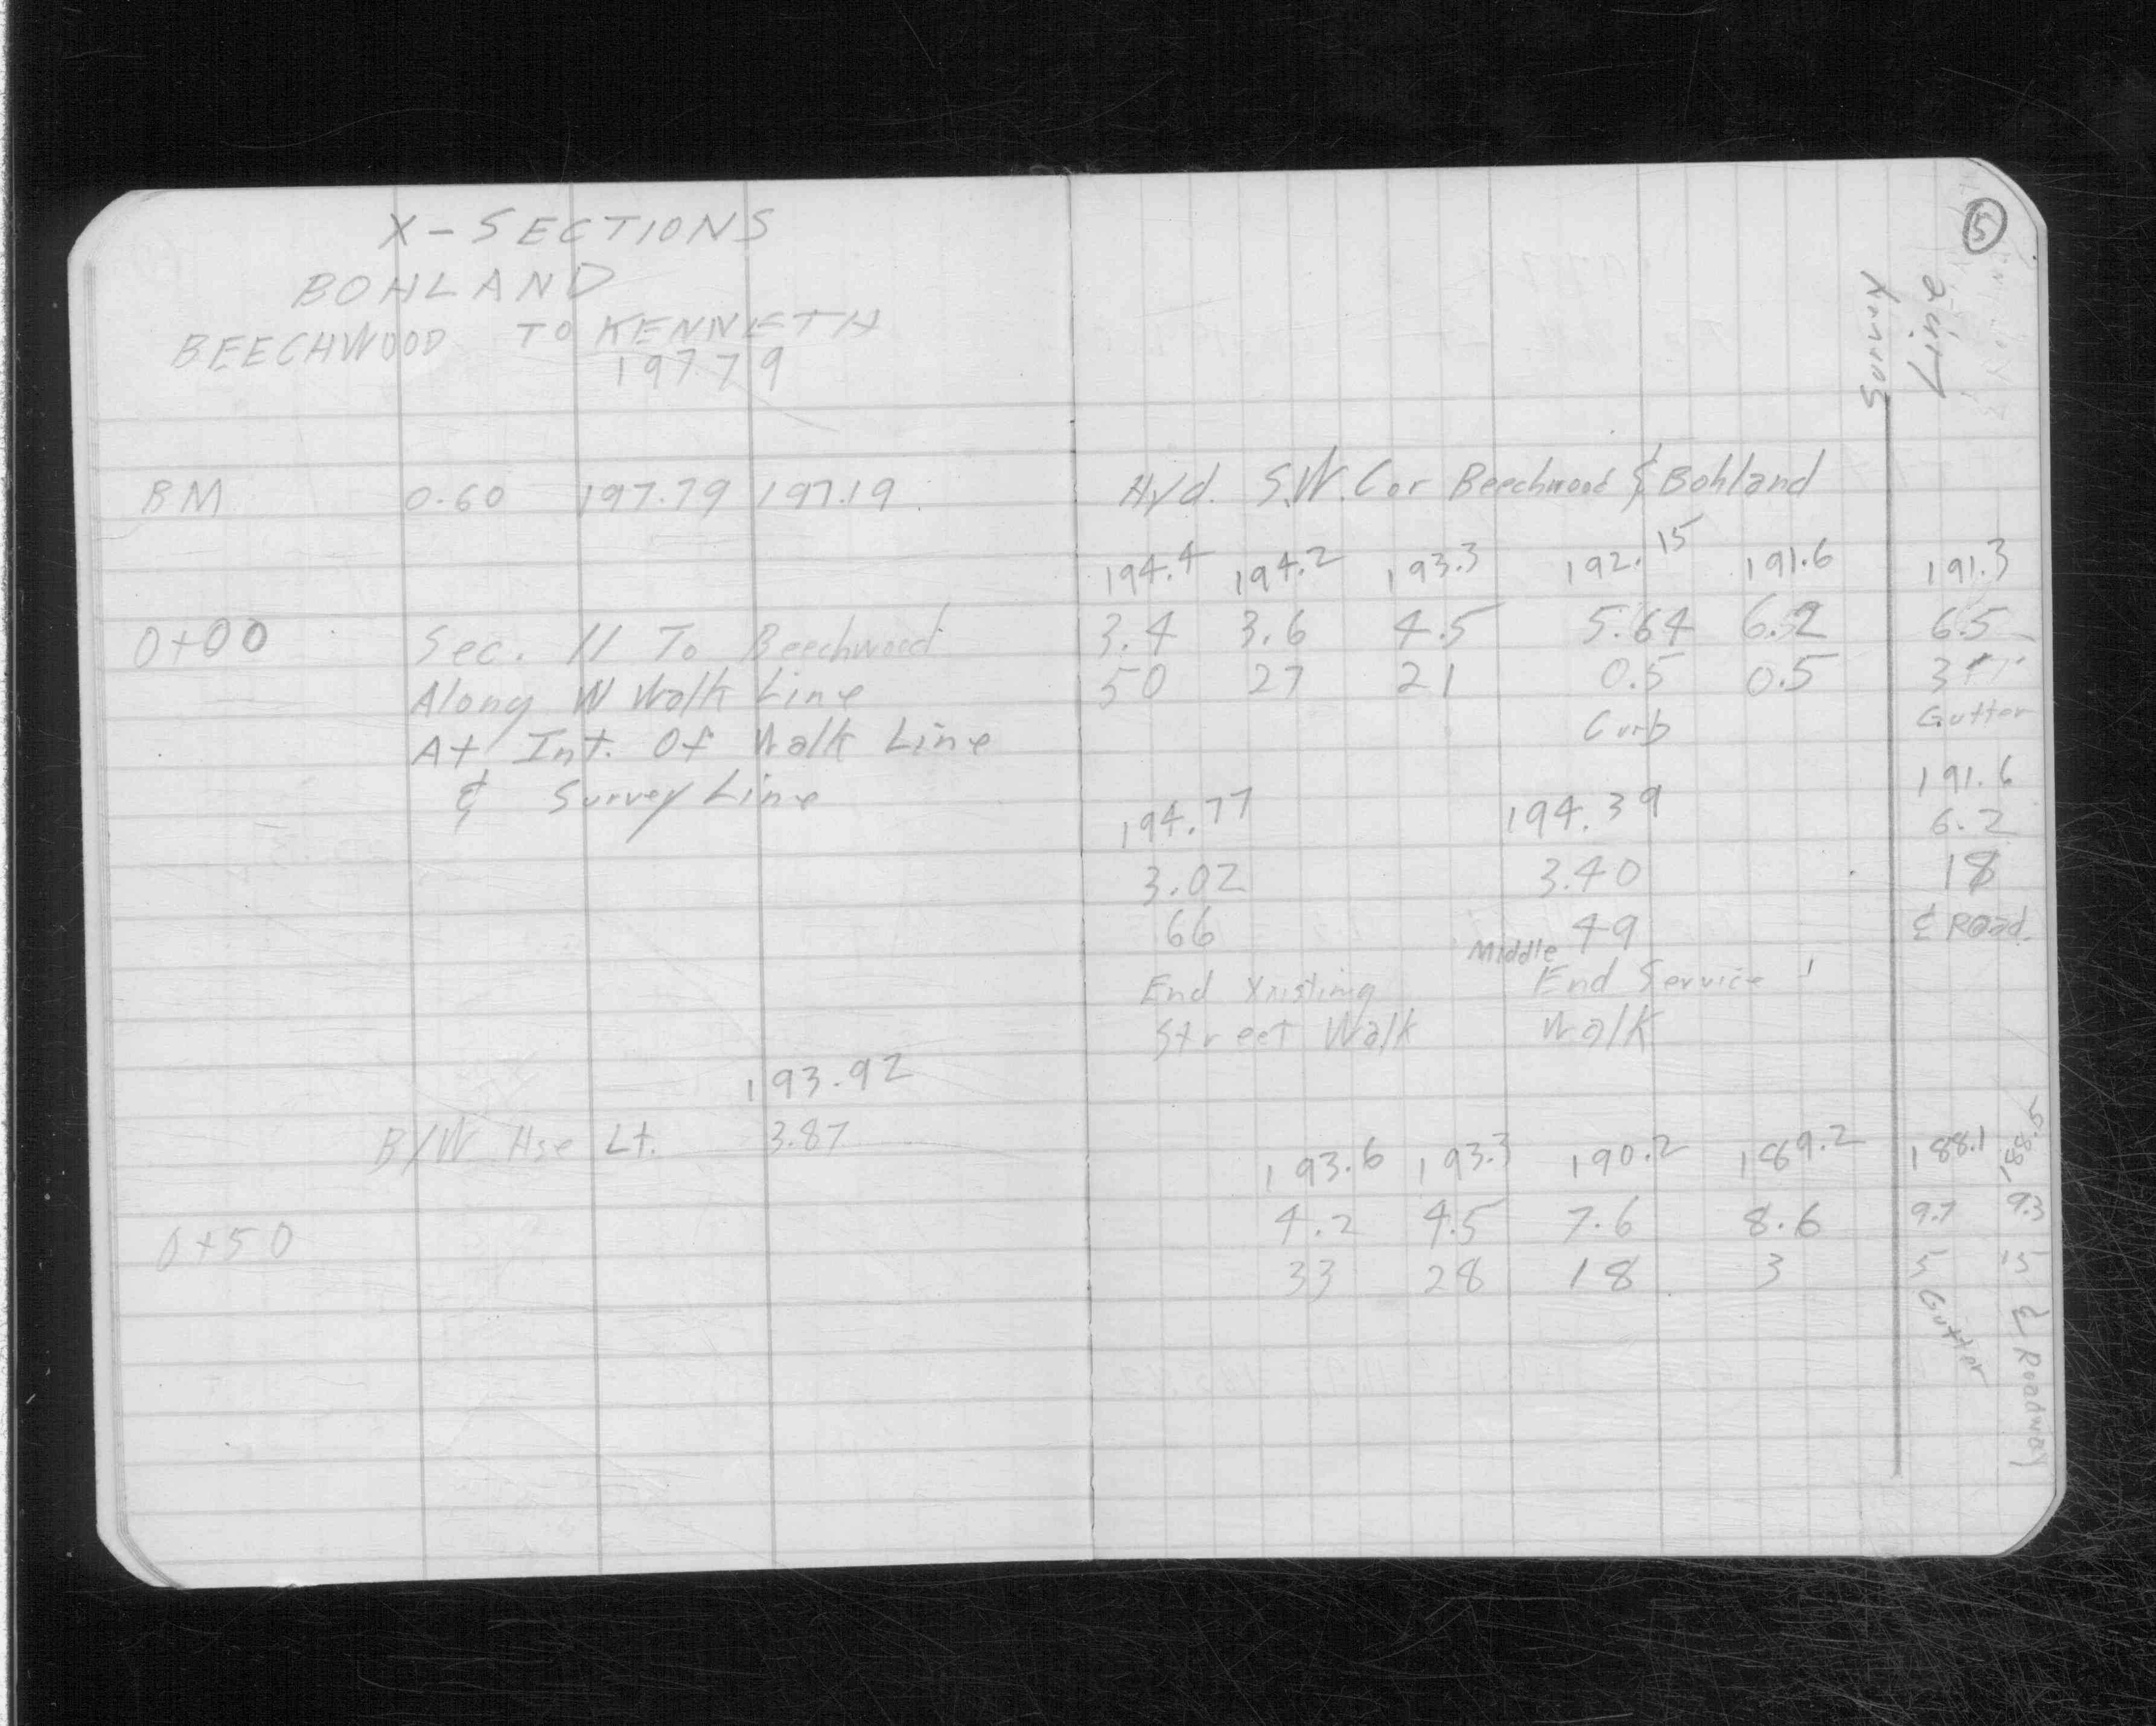 X-SECTIONS
BOHLAND
BEECHWOOD TO KENNETH
197.79
BM 0.60 197.79 197.19
0+00 Sec. // To Beechwood
Along W Walk Line
At Int. Of Walk Line
& Survey Line
193.92
B/W Hse Lt. 3.87
0+50
5
Survey
Line
Hyd. S.W. Cor Beechwood & Bohland
194.4 194.2 193.3 192.15 191.6 191.3
3.4 3.6 4.5 5.64 6.2 6.5
50 27 21 0.5 0.5 3
Curb Gutter
191.6
194.77 194.39 6.2
3.02 3.40 18
66 49 ℄ Road.
Middle
End Xristing End Service
Street Walk Walk
193.6 193.3 190.2 189.2 188.1 188.5
4.2 4.5 7.6 8.6 9.7 9.3
33 28 18 3 5 15
Gutter
℄ Roadway